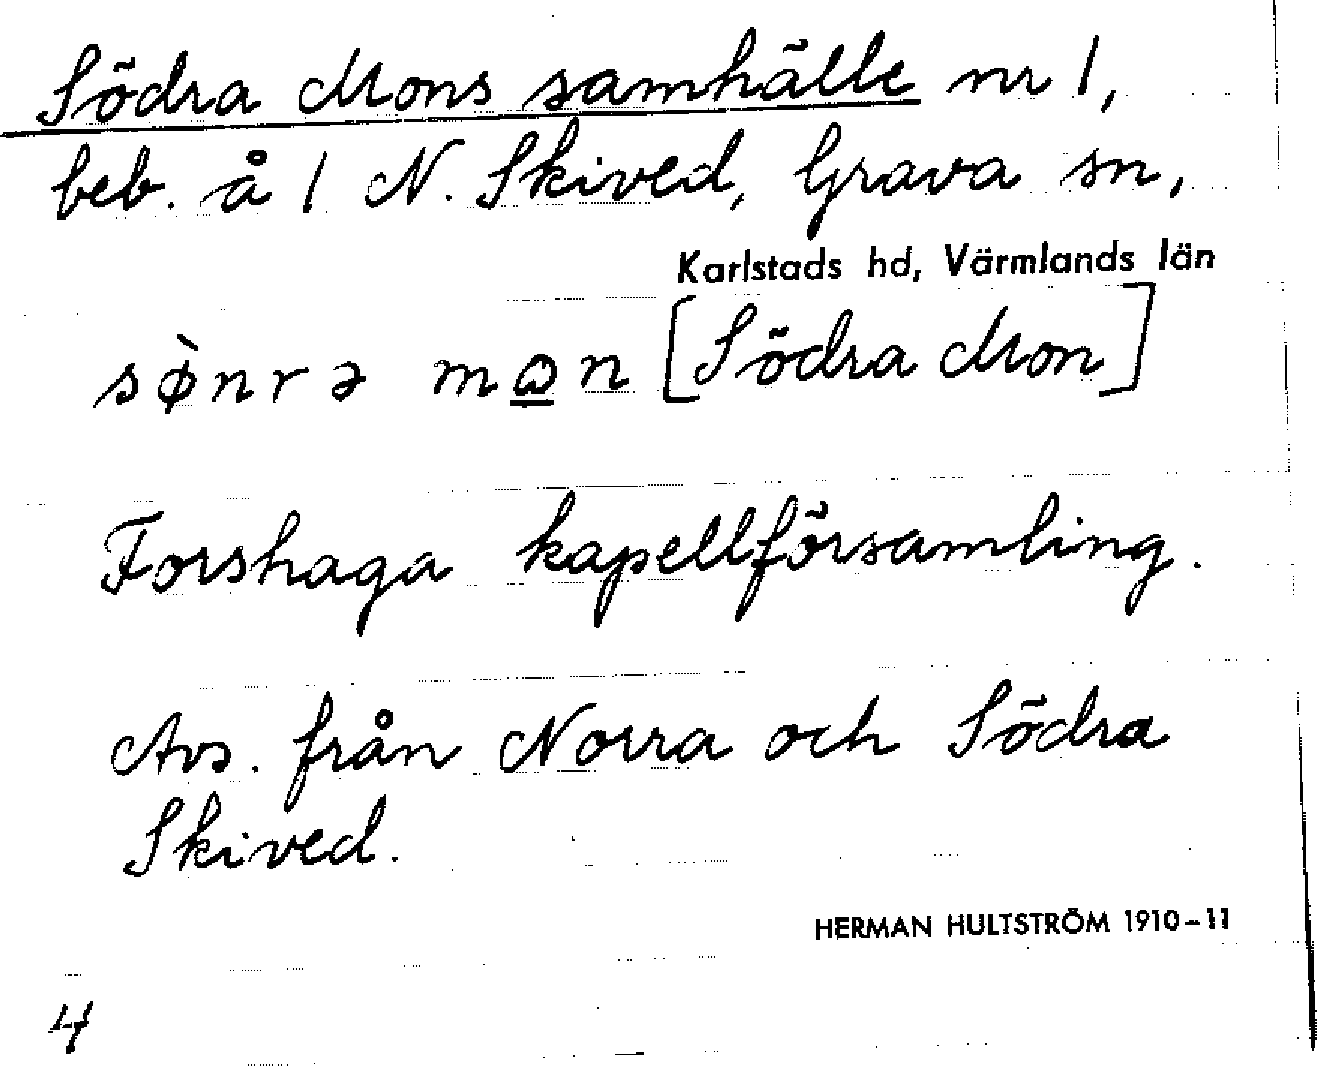 Södra Mons samhälle nr 1,
beb. å 1 N. Skived, Grava sn,
Karlstads hd, Värmlands län
sø̀nrə mɷ̲n [Södra Mon]
Forshaga kapellförsamling.
Avs. från Norra och Södra
Skived.
HERMAN HULTSTRÖM 1910-11
4